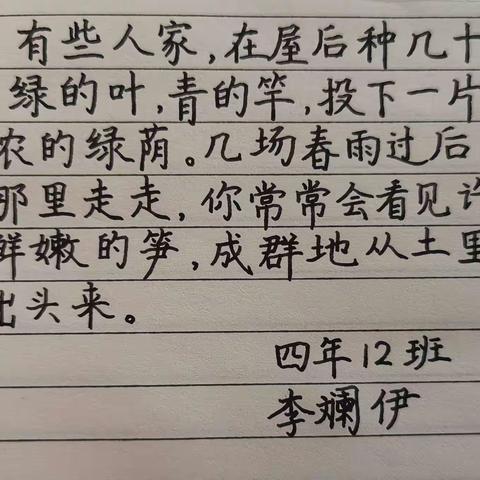 有些人家,在屋后种几十
绿的叶,青的竿,投下一片
农的绿荫。几场春雨过后
那里走走,你常常会看见许
鲜嫩的笋,成群地从土里
出头来。
四年12班
李斓伊